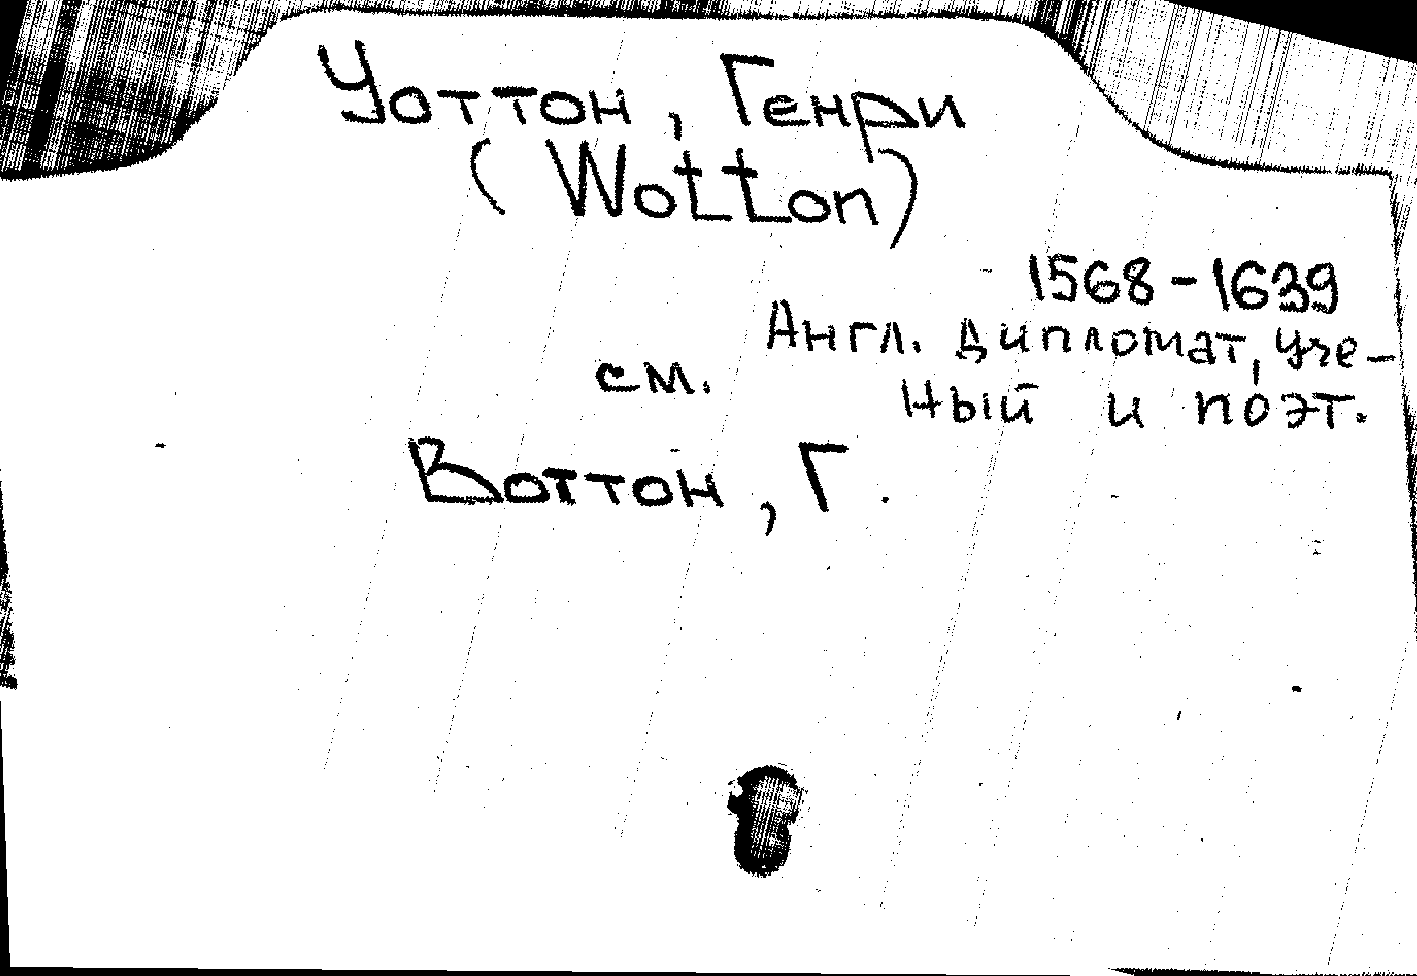 Уоттон, Генри
(Wotton)
1568-1639
Англ. дипломат, уче-
ный и поэт.
см.
Воттон, Г.